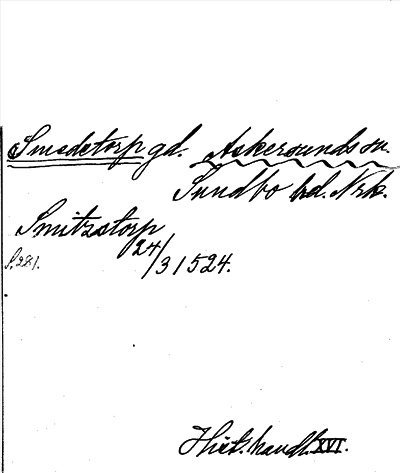 Smedetorp gd. Askersunds sn.
Sundbo hd. Nrk.
Smitzstorp
24/3 1524.
S. 221.
Hist. handl. XVI.